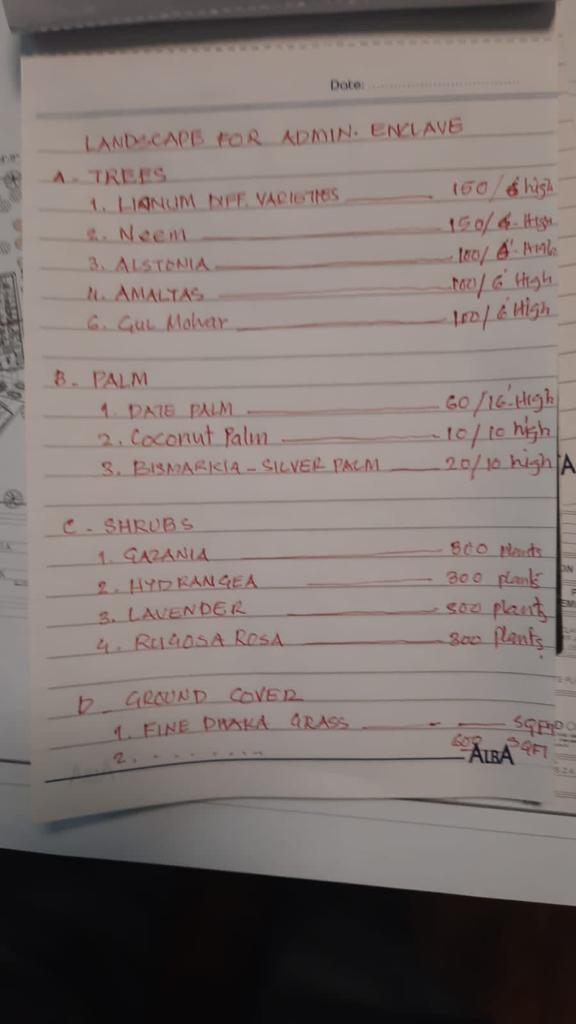 Date:
LANDSCAPE FOR ADMIN. ENCLAVE
A - TREES
1. LIANUM DIFF. VARIETIES 150/6 high
2. Neem 150/6 High
3. ALSTONIA 100/6' High
4. AMALTAS 100/6' High
6. Gul Mohar 100/6' High
B - PALM
1. DATE PALM 60/16' High
2. Coconut Palm 10/10 high
3. BISMARKIA - SILVER PALM 20/10 high
C - SHRUBS
1. GAZANIA 300 plants
2. HYDRANGEA 300 plants
3. LAVENDER 300 plants
4. RUGOSA ROSA 300 plants
D GROUND COVER
1. FINE DHAKA GRASS - SQFT
2. ........ 600 SQFT
ALBA